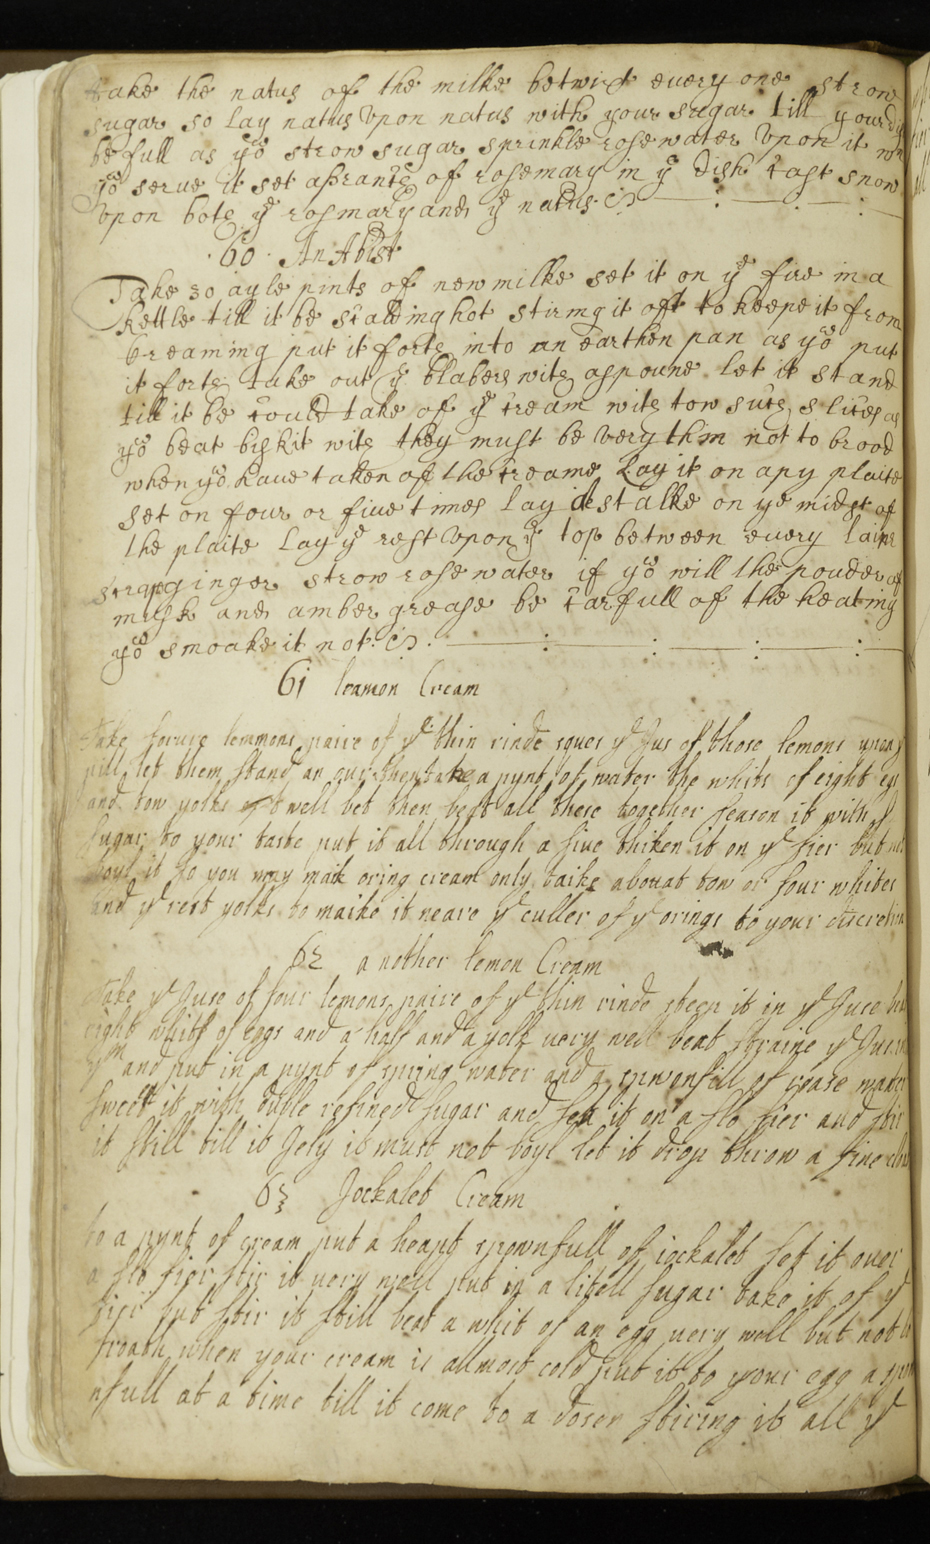 take the natus of the milke betwixt every one strow
sugar so lay natus Vpon natus with your sugar till your
be full as yo strow sugar sprinkle rosewater Vpon it
yo serue it set a of rosemary in ye dish cast snow
Vpon bote ye rosmary and ye natus
60 An
Take 30 ayle pints of new milke set it on ye fire in a
kettle till it be scalding hot stirring it oft to keepe it from
creaming put it forte into an earthen pan as yo put
it forte take out ye blabers wite aspoune let it stand
till it be could take of ye cream wite tow suce slices as
yo beat biskit wite they must be Very thin not to brood
when yo haue taken of the creame Lay it on any plaite
set on four or fiue times lay stalke on ye midst of
the plaite Lay ye rest Vpon ye top between euery laire
ginger strow rosewater if yo will the pouder of
musk and amber grease be carfull of the heating
yo smoake it not
61 leamon Cream
Take forure lemmons paire of ye thin rinde sques ye Jus of those lemons
pill let them stand an our then take a pynt of water the whits of eight
and tow yolks well bet then beat all these together season it with
sugar to your taste put it all through a siue thiken it on ye fier but
boyl it so you may mak oring cream only taike abouat tow or four whites
and ye rest yolks to maike it neare ye culler of ye orings to your discretion
62 a nother lemon Cream
Take ye Juse of four lemons paire of ye thin rinde steep it in ye Juce
eight whits of eggs and a half and a yolk uery well beat straine ye
ym and put in a pynt of spring water and spownfull of water
sweet it with duble refined sugar and set it on a slo fier and stir
it still till it Jely it must not boyl let it drop throw a fine
63 Jockalet Cream
to a pynt of cream put a heapt spownfull of jockalet set it ouer
a slo fier stir it uery well put in a litell sugar take it of ye
fier but stir it still beat a whit of an egg uery well but not
froath when your cream is allmost cold put it to your egg a
nfull at a time till it come to a dosen stiring it all ye